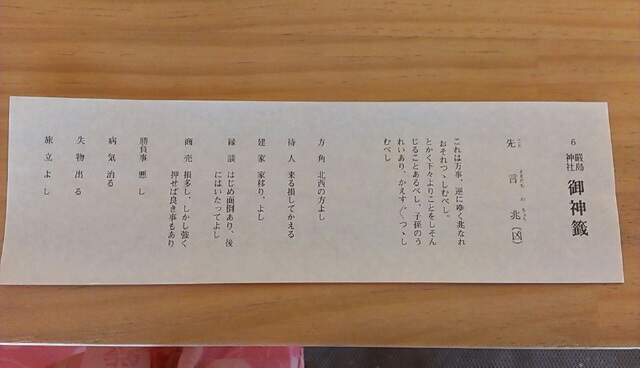 6 厳島神社 御神籤
先言兆(凶)
これは万事、逆にゆく兆なれ
おそれつゝしむべし。
とかく下々よりことをしそん
じることあるべし、子孫のう
れいあり、かえす〴〵つゝし
むべし
方角 北西の方よし
待人 来る損してかえる
建家 家移り、よし
縁談 はじめ面倒あり、後
にはいたってよし
商売 損多し、しかし強く
押せば良き事もあり
勝負事 悪し
病気 治る
失物 出る
旅立 よし